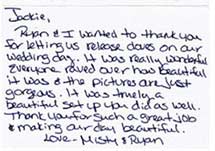 Jackie,
Ryan & I wanted to thank you
for letting us release doves on our
wedding day. It was really wonderful
Everyone raved over how beautiful
it was & the pictures are just
gorgeous. It was truely a
beautiful set up you did as well.
Thank you for such a great job
& making our day beautiful.
Love - Misty & Ryan